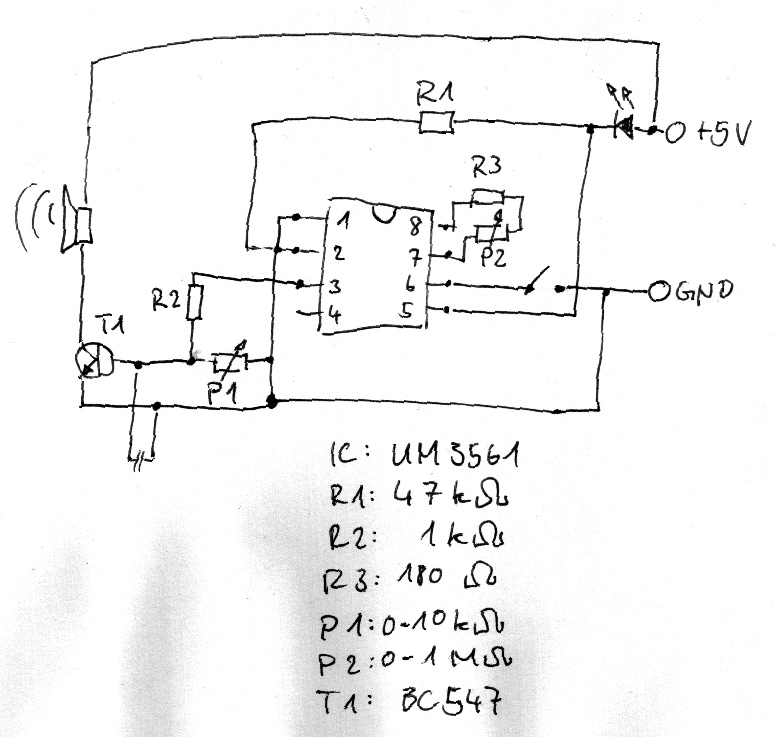 R1
+5V
R3
1
8
2
7
P2
3
6
R2
GND
4
5
T1
P1
IC: UM3561
R1: 47kΩ
R2: 1kΩ
R3: 180 Ω
P1: 0-10kΩ
P2: 0-1MΩ
T1: BC547